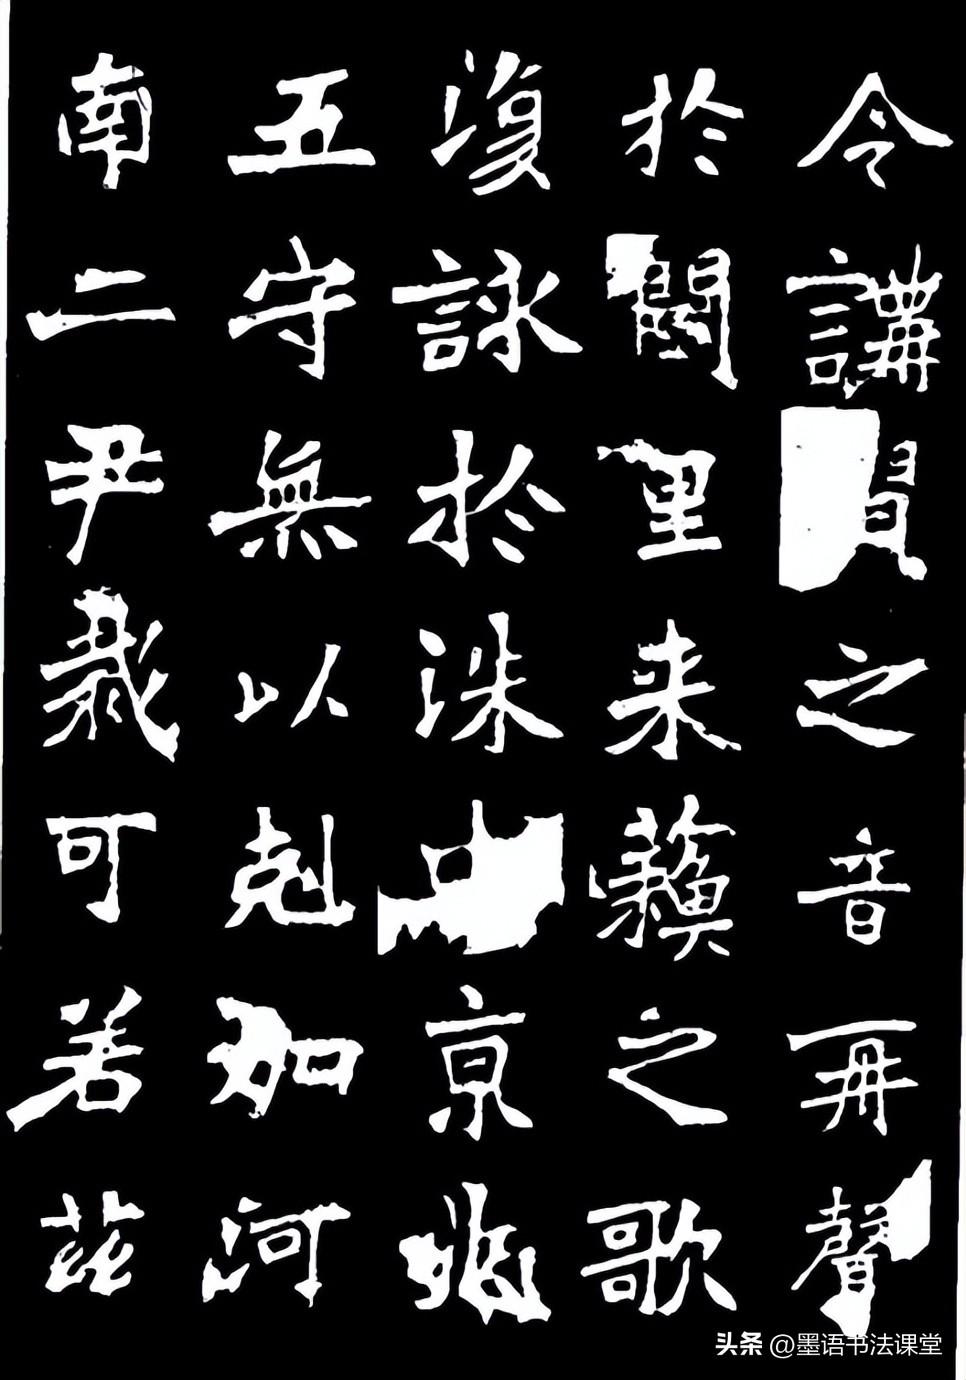 令講習之音再聲
於闕里来蘓之歌
復詠於洙中京兆
五守無以剋加河
南二尹裁可若兹
头条 @墨语书法课堂